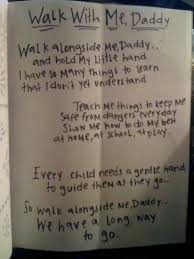 Walk With Me, Daddy
Walk alongside me, Daddy...
and hold my little hand.
I have so many things to learn
that I don't yet understand.
Teach me things to keep me
safe from dangers everyday
Show me how to do my best
at home, at school, at play.
Every child needs a gentle hand
to guide them as they go...
So walk alongside me, Daddy...
We have a long way
to go...